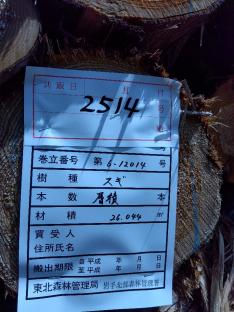 公売日 月 日
2514
巻立番号 第 6-12014 号
樹種 スギ
本数 本
材積 26.044 ㎥
買受人
住所氏名
搬出期限 自平成 年 月 日
至平成 年 月 日
東北森林管理局 岩手北部森林管理署